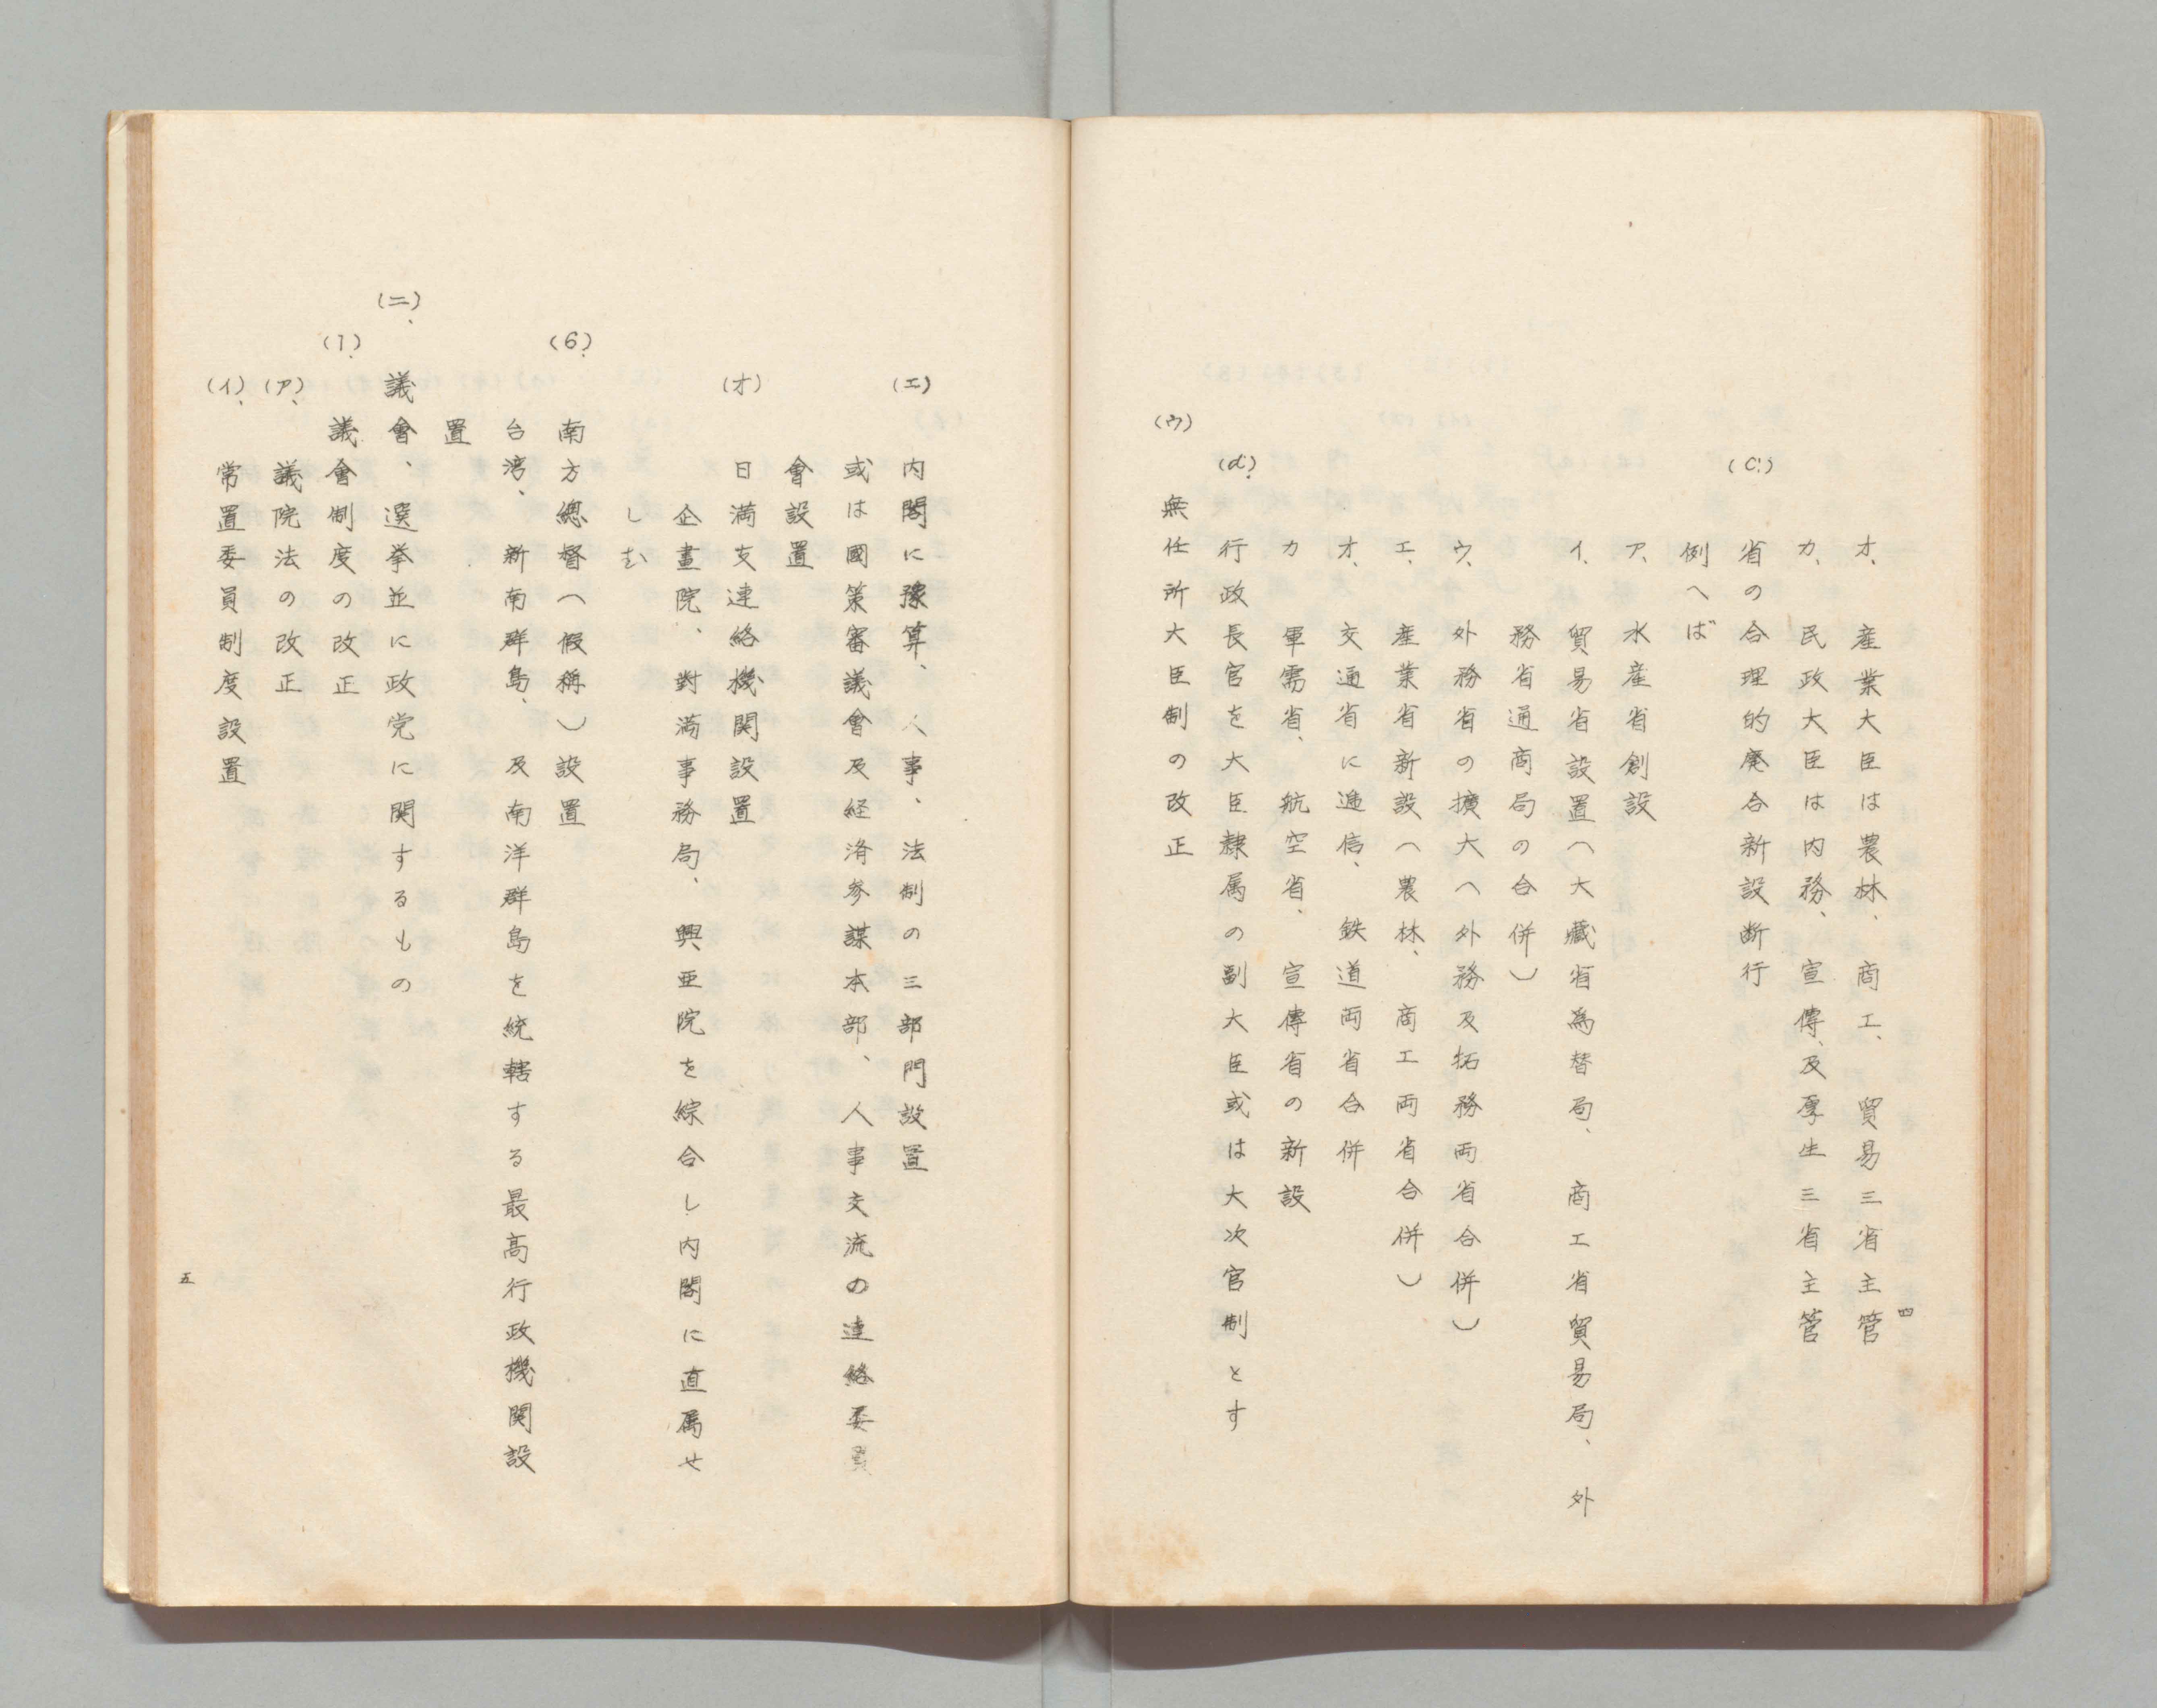 四
オ、産業大臣は農林、商工、貿易三省主管
カ、民政大臣は内務、宣傳、及厚生三省主管
(C)、省の合理的廃合新設断行
例へば
ア、水産省創設
イ、貿易省設置(大藏省爲替局、商工省貿易局、外
務省通商局の合併)
ウ、外務省の擴大(外務及拓務両省合併)
エ、産業省新設(農林、商工両省合併)
オ、交通省に逓信、鉄道両省合併
カ軍需省、航空省、宣傳省の新設
(d)、行政長官を大臣隷属の副大臣或は大次官制とす
(ウ)無任所大臣制の改正
(エ)内閣に豫算、人事、法制の三部門設置
或は國策審議會及経済参謀本部、人事交流の連絡委員
會設置
(オ)日満支連絡機関設置
企畫院、對満事務局、興亜院を綜合し内閣に直属せ
しむ
(6)、南方總督(假稱)設置
台湾、新南群島、及南洋群島を統轄する最高行政機関設
置
(二)、議會、選挙並に政党に関するもの
(1)、議會制度の改正
(ア)、議院法の改正
(イ)、常置委員制度設置
五